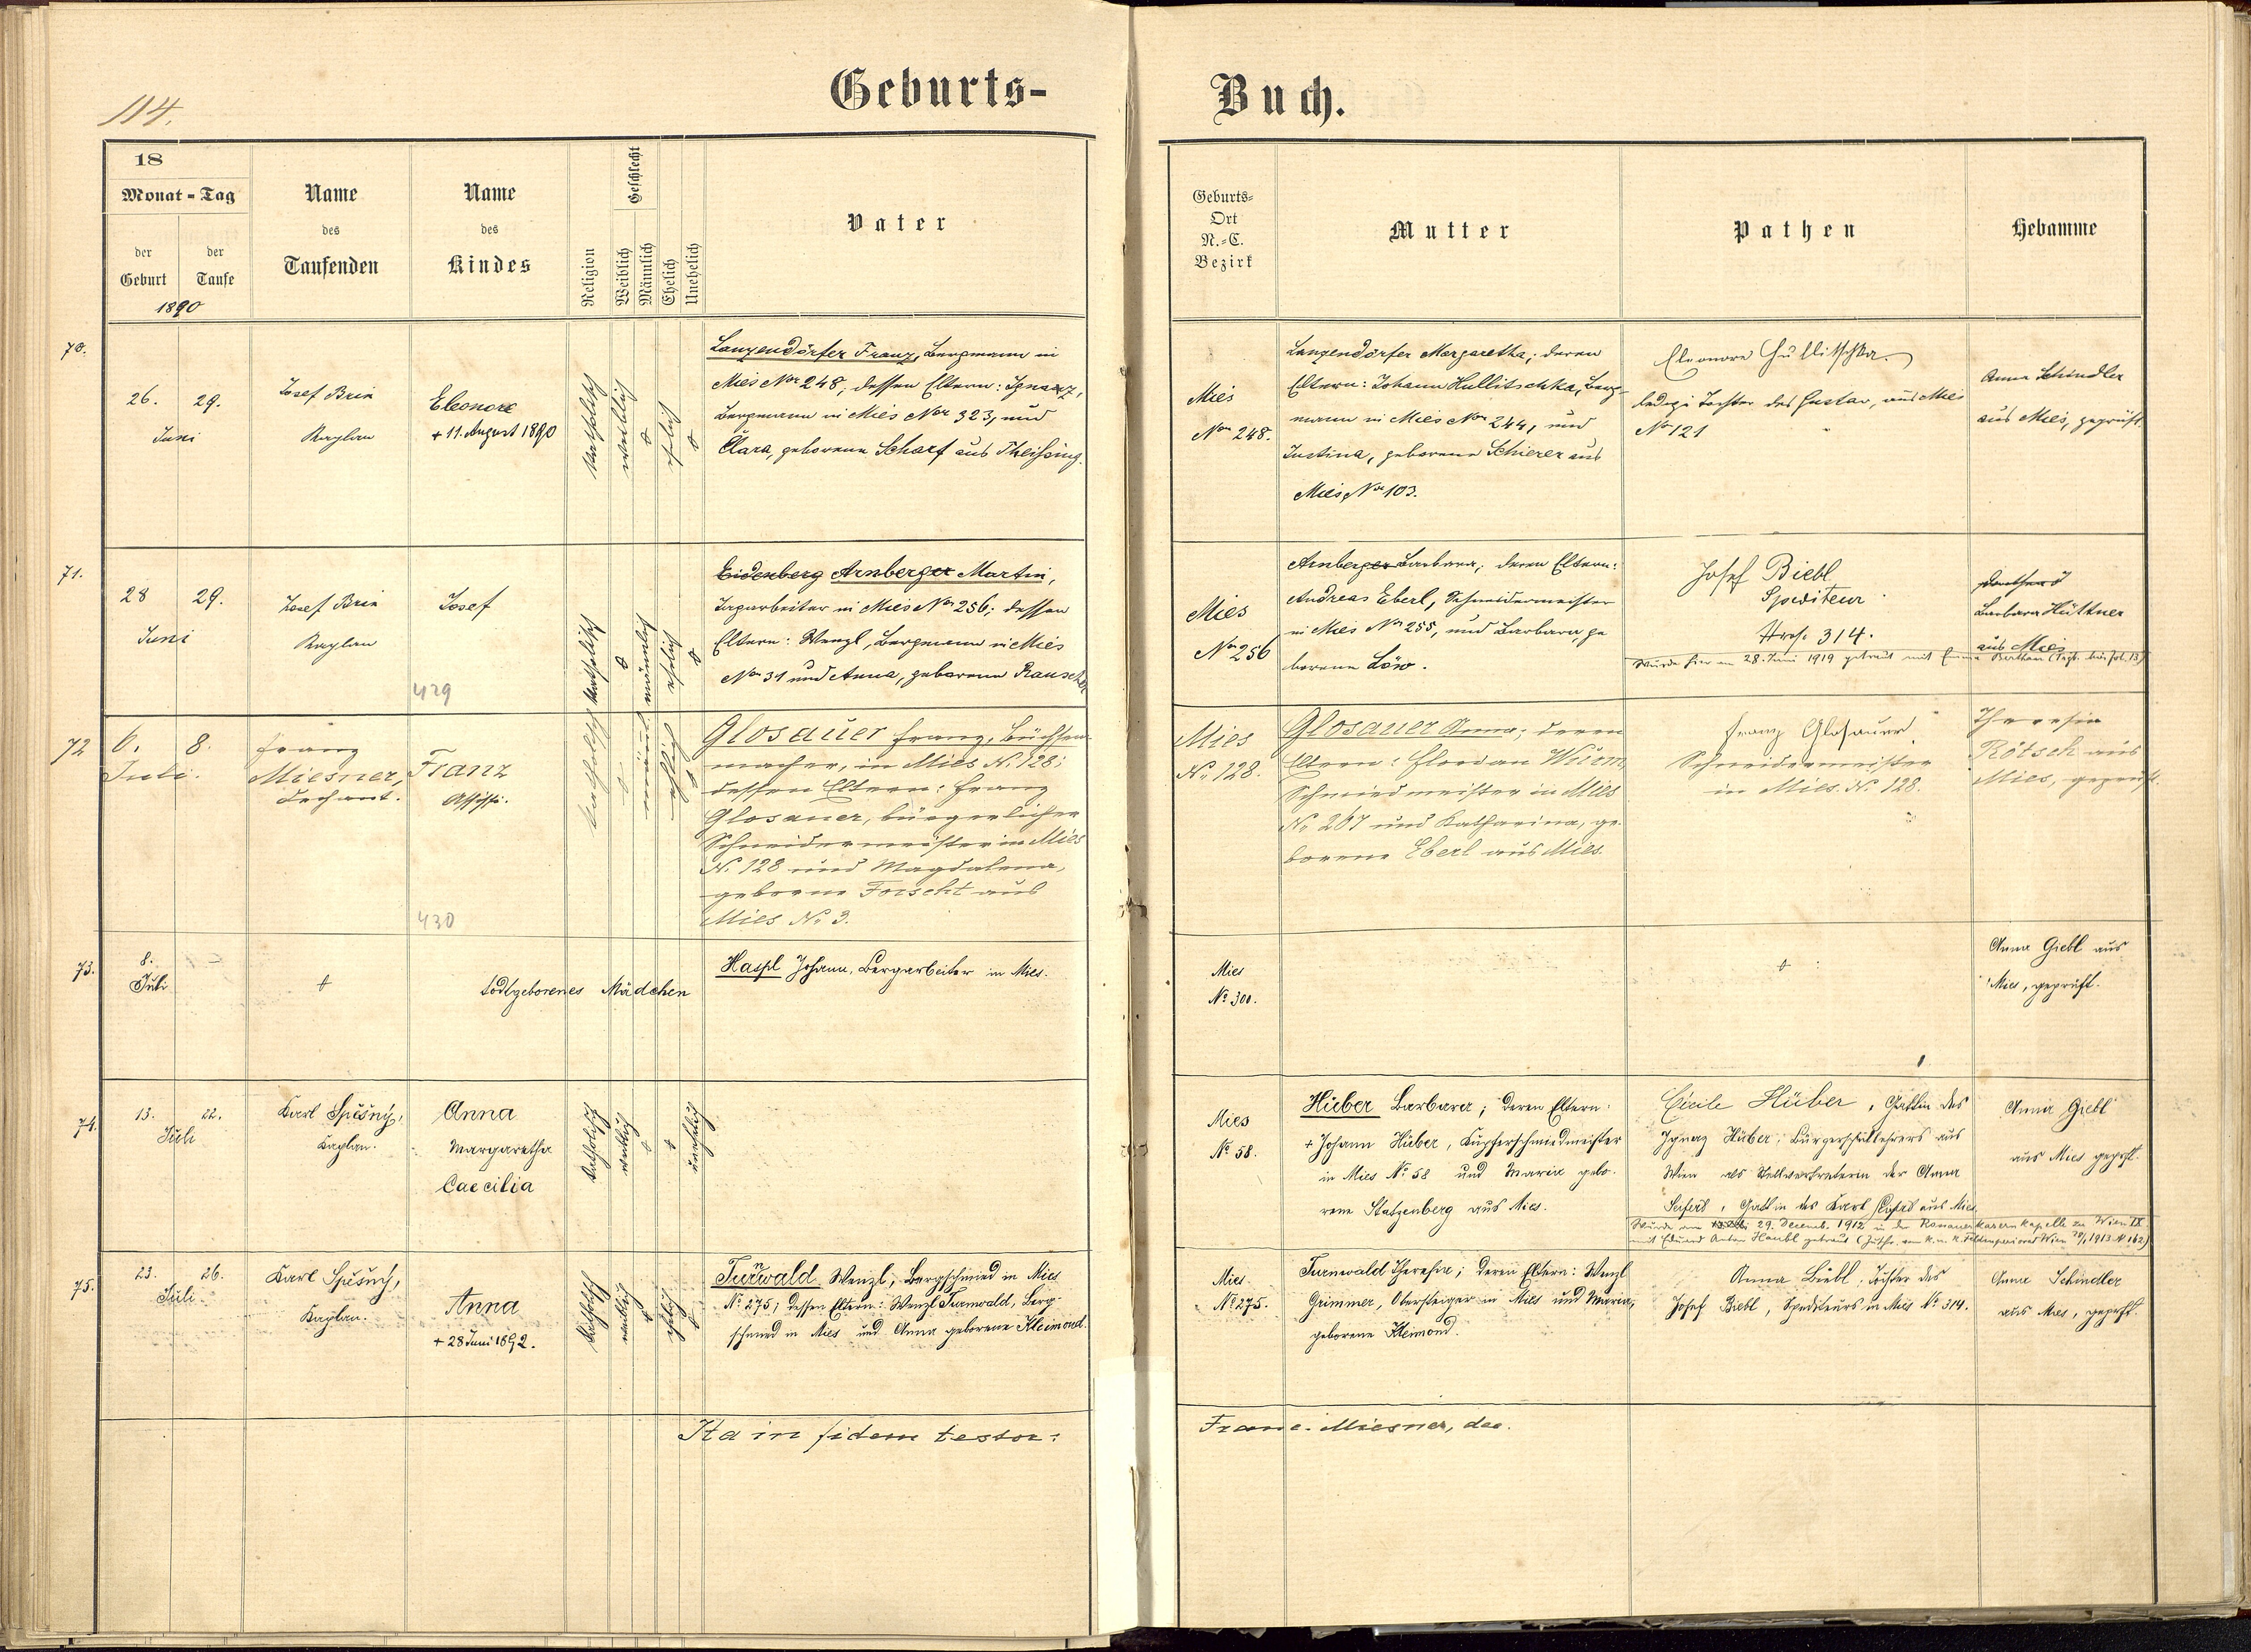 114.
Geburts-
Buch.
18
Monat-Tag
der
Geburt
der
Taufe
1890
Name
des
Taufenden
Name
des
Kindes
Religion
Geschlecht
Weiblich
Männlich
Ehelich
Unehelich
Vater
Geburts-
Ort
N.-C.
Bezirk
Mutter
Pathen
Hebamme
70.
26. 29.
Juni
Josef Brin
Kaplan
Eleonore
+ 11. August 1890
katholisch
weiblich
ehelich
Langendörfer Franz, Bergmann in
Mies Nro 248; dessen Eltern: Ignaz,
Bergmann in Mies Nro 323, und
Clara, geborene Scharf aus Theißing.
Mies
Nro 248.
Langendörfer Margaretha; deren
Eltern: Johann Hullitschka, Berg-
mann in Mies Nro 244, und
Justina, geborene Schierer aus
Mies, Nro 103.
Eleonore Hullitschka.
ledige Tochter des Gustav, aus Mies
No 121
Anna Schindler
aus Mies, geprüft.
71.
28 29.
Juni
Josef Brin
Kaplan
Josef
429
katholisch
männlich
ehelich
Eidenberg Arnberger Martin,
Tagarbeiter in Mies Nro 256; dessen
Eltern: Wenzl, Bergmann in Mies
Nro 31 und Anna, geborene Rauscher
Mies
Nro 256
Arnberger Barbara; deren Eltern:
Andreas Eberl, Schneidermeister
in Mies Nro 255, und Barbara, ge
borene Löw.
Josef Biebl
Spediteur
Hrs. 314.
Wurde hier am 28. Juni 1919 getraut mit Emma
Barbara Hüttner
aus Mies
72
6. 8.
Juli.
Franz
Miesner,
Dechant.
Franz
Assissi.
430
katholisch
männl.
ehelich
Glosauer Franz, Büchsen-
macher, in Mies N. 128;
dessen Eltern: Franz
Glosauer, bürgerlicher
Schneidermeister in Mies
N. 128 und Magdalena,
geborene Forscht aus
Mies No 3.
Mies
No 128.
Glosauer Anna; deren
Eltern: Florian Wurm,
Schmiedmeister in Mies
No 267 und Katharina, ge-
borene Eberl aus Mies.
Franz Glosauer
Schneidermeister
in Mies. N. 128.
Theresia
Rötsch aus
Mies, geprüft.
73.
8.
Juli
todtgeborenes Mädchen
Haspl Johann, Bergarbeiter in Mies.
Mies
No 300.
Anna Giebl aus
Mies, geprüft.
74.
13. 22.
Juli
Karl Spěšný,
Kaplan.
Anna
Margaretha
Caecilia
katholisch
weiblich
unehelich
Mies
No 58.
Hüber Barbara; deren Eltern:
+ Johann Hüber, Kupferschmiedmeister
in Mies No 58 und Maria gebo-
rene Statzenberg aus Mies.
Cäcilie Hüber, Gattin des
Ignaz Hüber, Bürgerschullehrers aus
Wien als Stellvertreterin der Anna
Seifert, Gattin des Karl Seifert aus Mies.
Wurde am 29. Decemb. 1912 in der Rossauerkasernkapelle zu Wien IX
mit Eduard Anton Haubl getraut
Anna Giebl
aus Mies geprft.
75.
23. 26.
Juli
Karl Spěšný,
Kaplan.
Anna
+ 28 Juni 1892.
katholisch
weiblich
ehelich
Turnwald Wenzl, Bergschmied in Mies
No 275; dessen Eltern: Wenzl Turnwald, Berg
schmied in Mies und Anna geborene Kleimond.
Mies
No 275.
Turnwald Theresia; deren Eltern: Wenzl
Grimmer, Obersteiger in Mies und Maria,
geborene Kleimond.
Anna Biebl, Tochter des
Josef Biebl, Spediteurs in Mies No 314.
Anna Schindler
aus Mies, geprft.
Ita in fidem testor:
Franc. Miesner, dec.